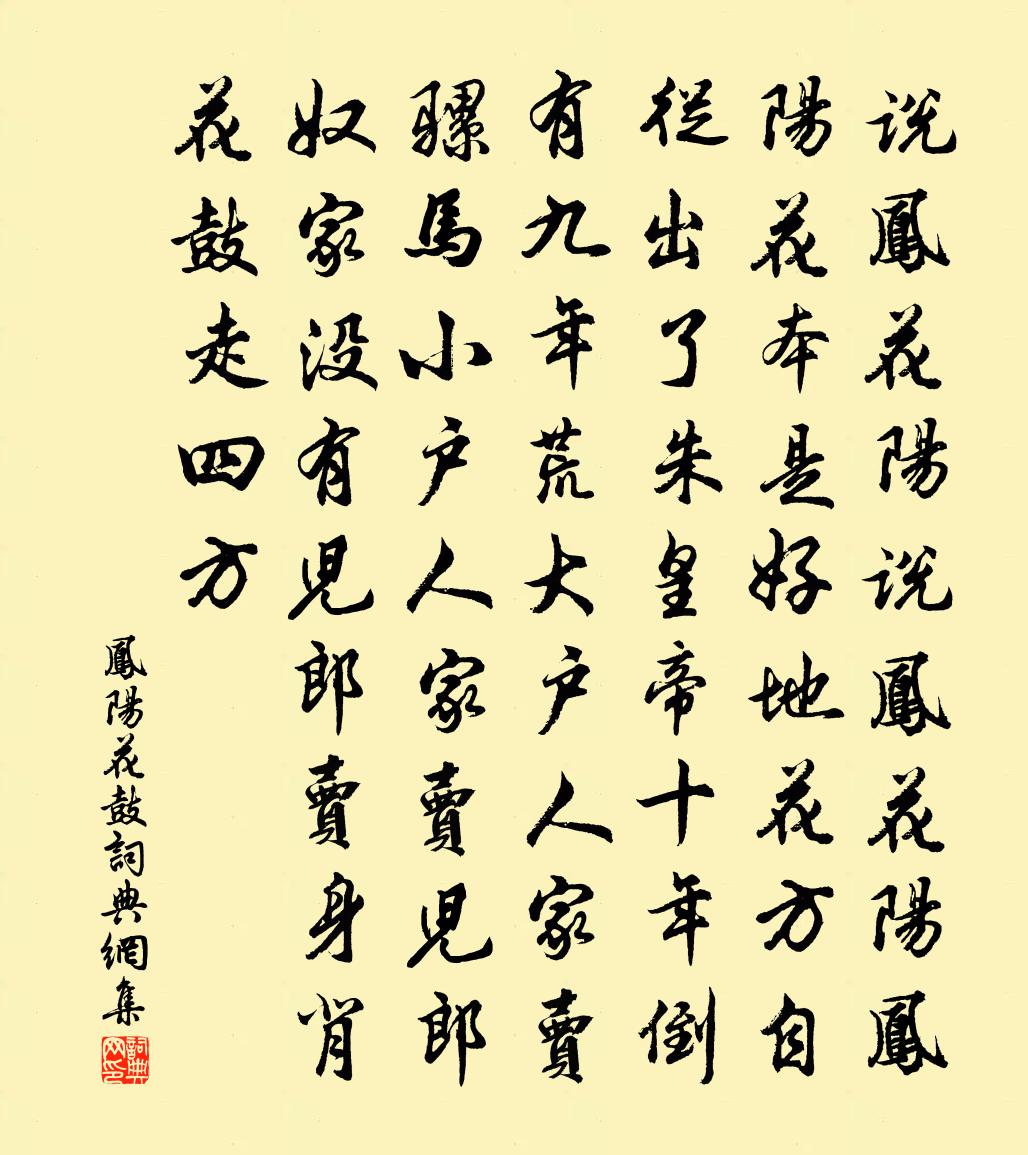 說鳳花陽說鳳花陽鳳
陽花本是好地花方自
從出了朱皇帝十年倒
有九年荒大户人家賣
騾馬小户人家賣児郎
奴家没有児郎賣身肖
花鼓走四方
鳳陽花鼓詞典網集
詞典網印